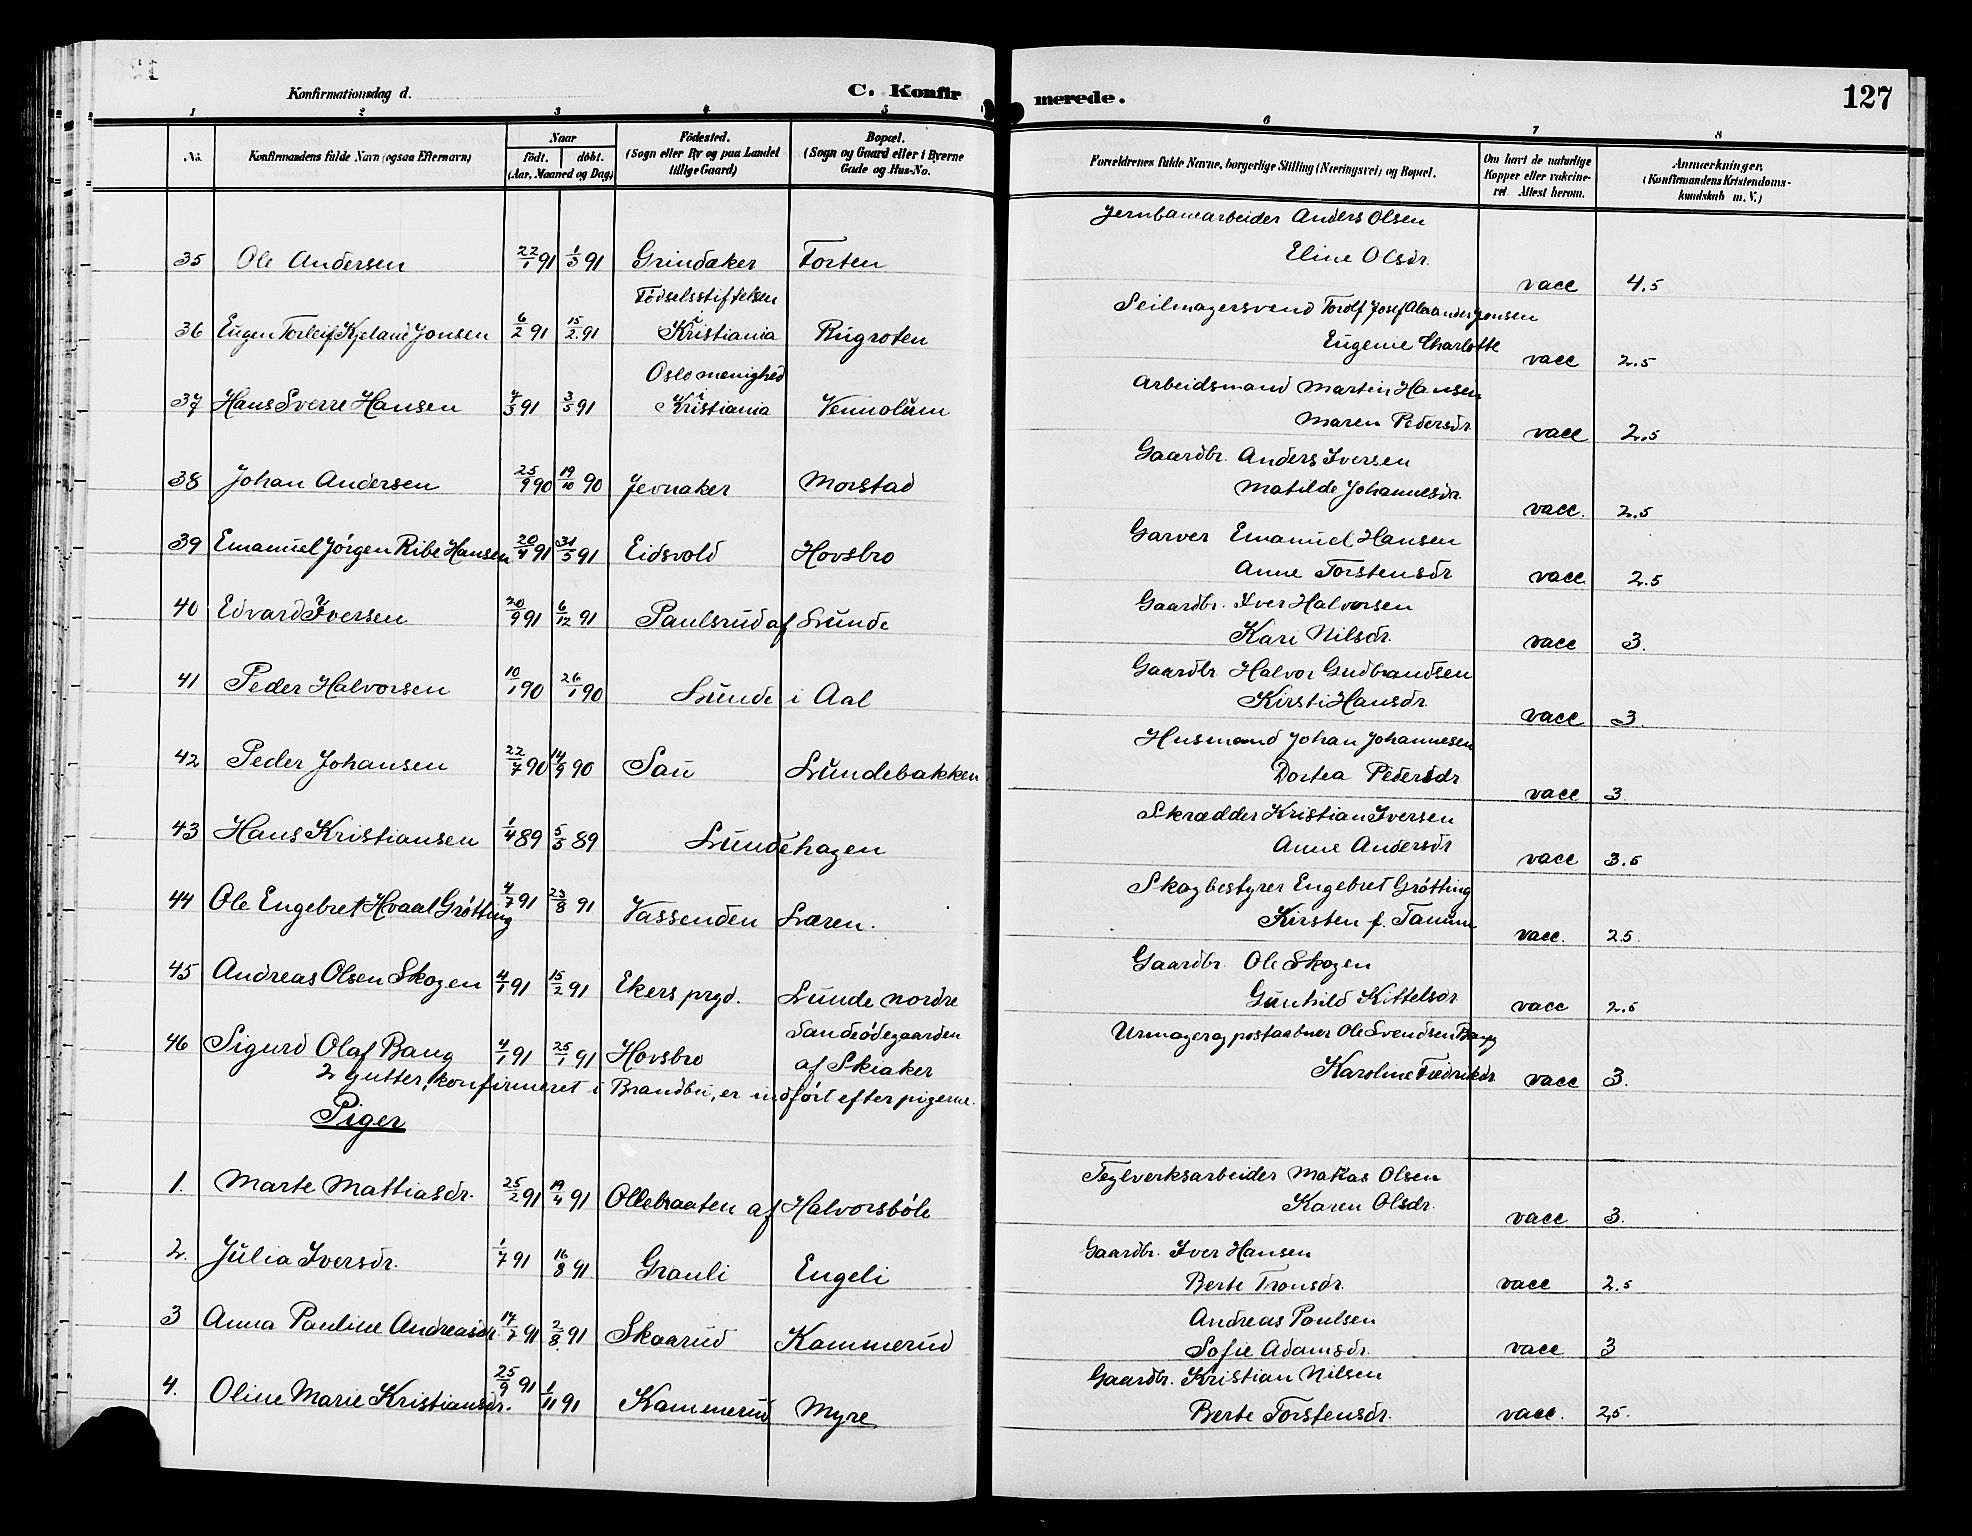 Konfirmationsdag d.
C. Konfirmerede.
127
1 2 3 4 5 6 7 8
No.
Konfirmandens fulde Navn (ogsaa Efternavn)
Naar
født. døbt.
(Aar, Maaned og Dag)
Fødested.
(Sogn eller By og paa Landet
tillige Gaard)
Bopæl.
(Sogn og Gaard eller i Byerne
Gade og Hus-No.
Forældrenes fulde Navne, borgerlige Stilling (Næringsvei) og Bopæl.
Om havt de naturlige
Kopper eller vakcine-
ret. Attest herom.
Anmærkninger.
(Konfirmandens Kristendoms-
kundskab m. V.)
Jernbanearbeider Anders Olsen
35 Ole Andersen 22/1 91 1/3 91 Grindaker Torten Eline Olsdr. vacc 4.5
Fødselsstiftelsen Seilmagersvend Torolf Josef Alexander Jonsen
36 Eugen Torleif Kjeland Jonsen 6/2 91 15/2 91 i Kristiania Rugroten Eugenie Charlotte vacc 2.5
Oslo menighed Arbeidsmand Martin Hansen
37 Hans Sverre Hansen 7/3 91 3/5 91 i Kristiania Vennolum Maren Pedersdr vacc 2.5
Gaardbr. Anders Iversen
38 Johan Andersen 25/9 90 19/10 90 Jevnaker Morstad Matilde Johannesdr. vacc. 2.5
Garver Emanuel Hansen
39 Emanuel Jørgen Ribe Hansen 20/4 91 31/5 91 Eidsvold Hovsbro Anne Torstensdr vacc 2.5
Gaardbr. Iver Halvorsen
40 Edvard Iversen 20/9 91 6/12 91 Paulsrud af Lunde Kari Nilsdr. vacc 3.
Gaardbr Halvor Gudbrandsen
41 Peder Halvorsen 10/1 90 26/1 90 Lunde i Aal Kirsti Hansdr. vacc 3
Husmand Johan Johannesen
42 Peder Johansen 22/7 90 14/9 90 Sau Lundebakken Dortea Pedersdr vacc 3.
Skrædder Kristian Iversen
43 Hans Kristiansen 1/4 89 5/5 89 Lundehagen Anne Andersdr vacc 3.5
Skogbestyrer Engebret Grøtting
44 Ole Engebret Hvaal Grøtting 4/7 91 23/8 91 Vassenden Læren. Kirsten f. Tamm vacc. 25.
Gaardbr. Ole Skogen
45 Andreas Olsen Skogen 4/1 91 15/2 91 Ekers prgd. Lunde nordre Gunhild Kittelsdr vacc 2.5
Sandeødegaarden Urmager og postaabner Ole Svendsen Bang
46 Sigurd Olaf Bang 4/1 91 25/1 91 Hovsbro af Skiaker Karoline Fredriksdr vacc 3.
2 gutter, konfirmeret i Brandbu, er indført efter pigerne.
Piger
Teglverksarbeider Matias Olsen
1. Marte Mattiasdr. 25/2 91 19/4 91 Ollebraaten af Halvorsbøle Karen Olsdr. vacc 3.
Gaardbr. Iver Hansen
2. Julia Iversdr. 1/7 91 16/8 91. Grauli Engeli Berte Tronsdr. vacc 2.5
Andreas Paulsen
3 Anna Pauline Andreasdr 17/7 91 2/8 91 Skaarud Kammerud Sofie Adamsdr. vacc 3
Gaardbr. Kristian Nilsen
4. Oline Marie Kristiansdr. 25/9 91 1/11 91 Kammerud Myre Berte Torstensdr. vacc. 2,5.